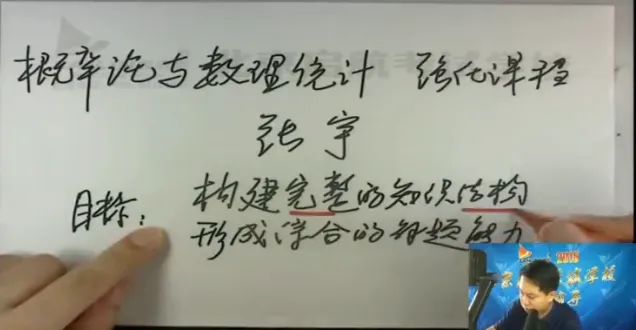 概率论与数理统计 强化课程
张宇
目标: 构建完整的知识结构
形成综合的解题能力